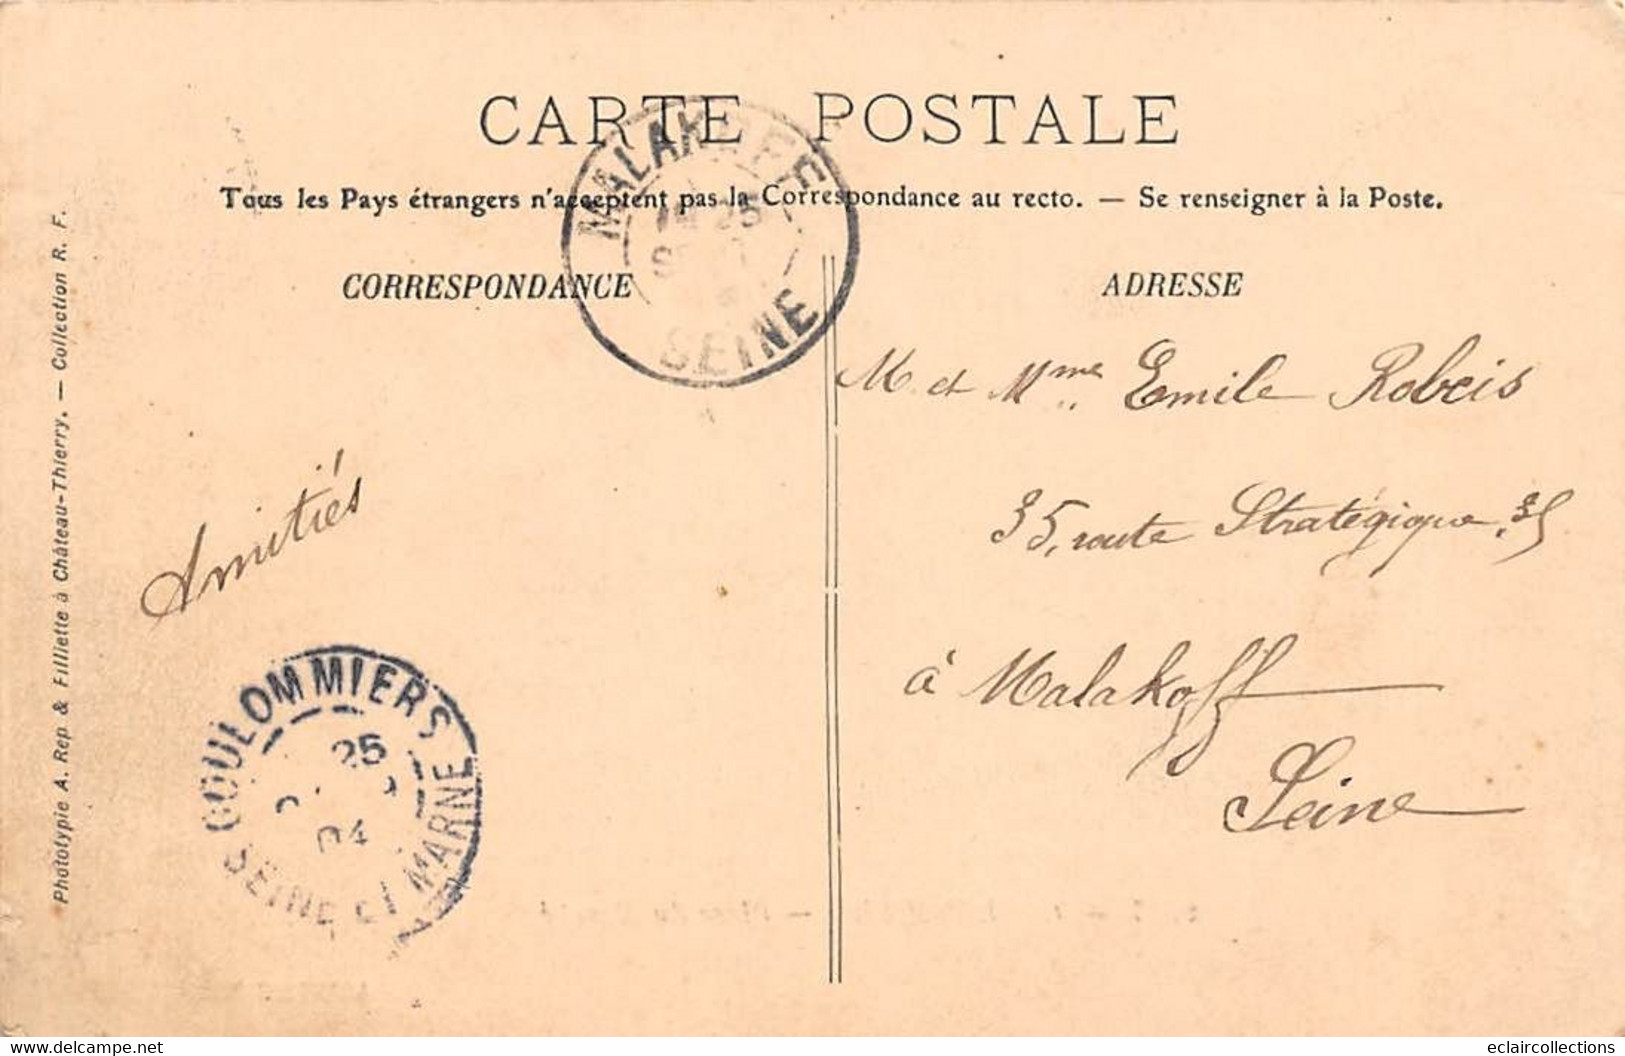 CARTE POSTALE
Tous les Pays étrangers n'acceptent pas la Correspondance au recto. — Se renseigner à la Poste.
CORRESPONDANCE
ADRESSE
MALAKOFF
25
SEINE
M. et Mme Emile Robcis
35, route Stratégique, 35
à Malakoff
Seine
Amitiés
COULOMMIERS
25
04
SEINE ET MARNE
Phototypie A. Rep & Filliette à Château-Thierry. — Collection R. F.
www.delcampe.net
eclaircollections